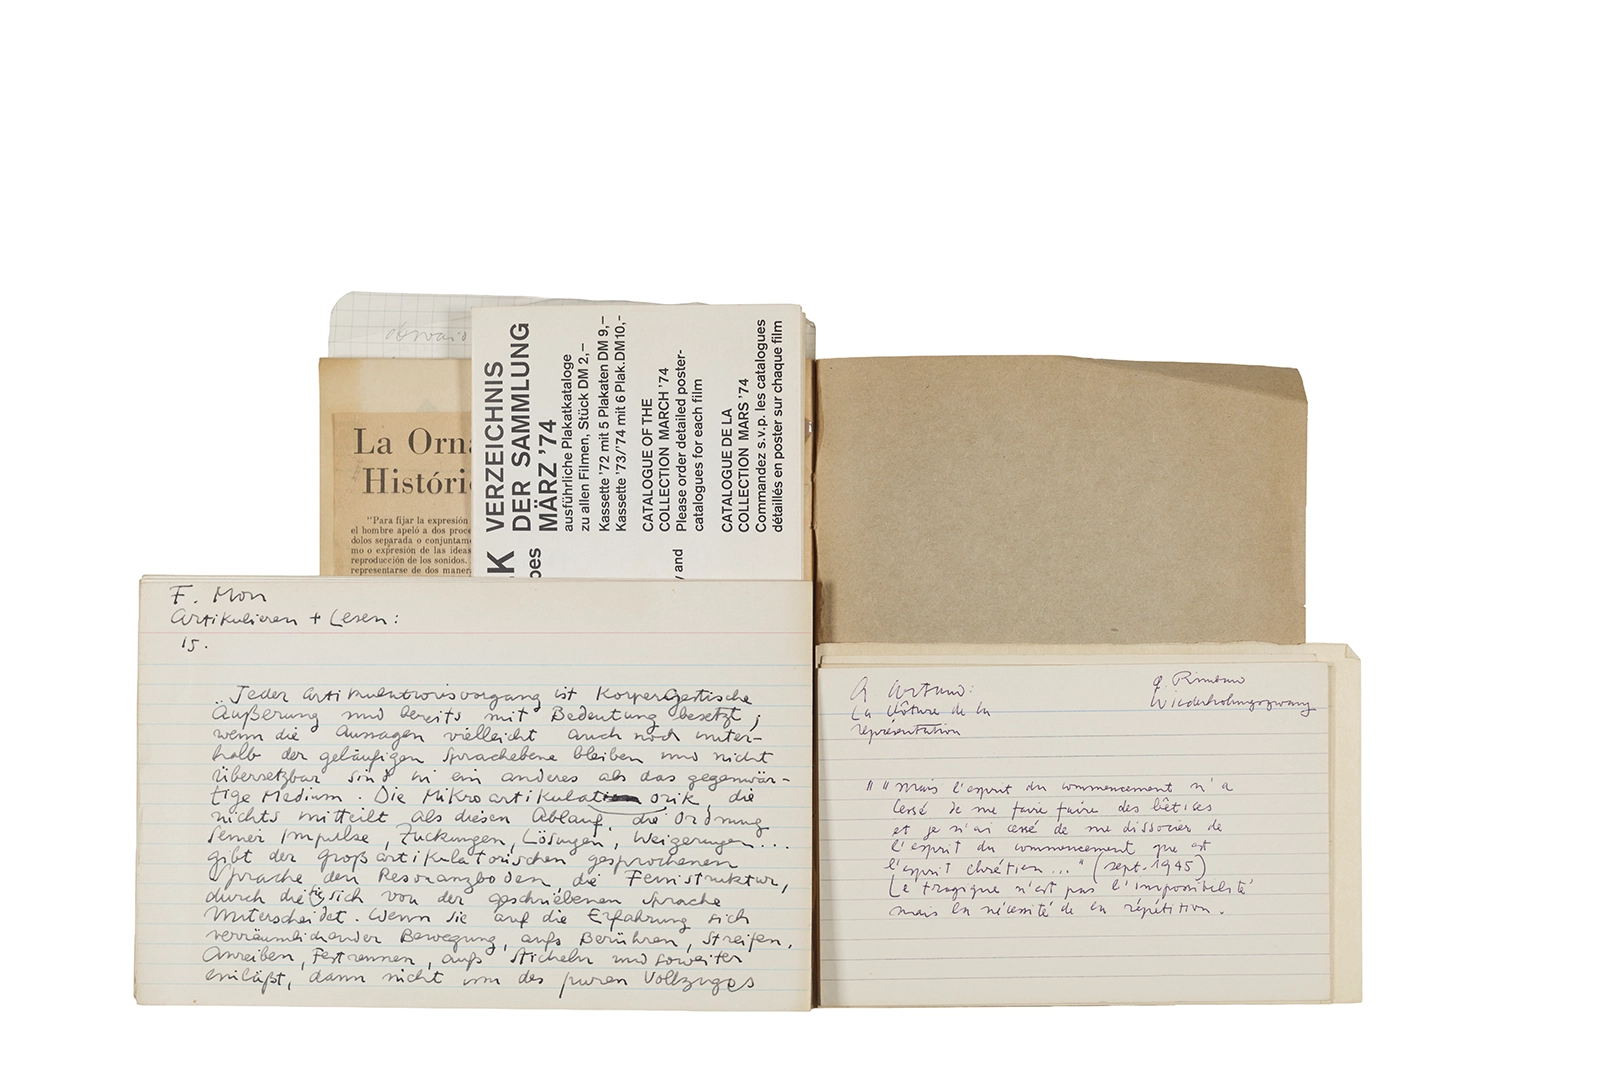 La Orna
Históri
"Para fijar la expresión
el hombre apeló a dos proce
dolos separada o conjuntame
mo o expresión de las ideas
reproducción de los sonidos.
representarse de dos maner
VERZEICHNIS
DER SAMMLUNG
MÄRZ '74
ausführliche Plakatkataloge
zu allen Filmen, Stück DM 2,–
Kassette '72 mit 5 Plakaten DM 9,–
Kassette '73/'74 mit 6 Plak.DM 10,–
CATALOGUE OF THE
COLLECTION MARCH '74
Please order detailed poster-
catalogues for each film
CATALOGUE DE LA
COLLECTION MARS '74
Commandez s.v.p. les catalogues
détaillés en poster sur chaque film
K
pes
y and
F. Mon
Artikulieren + Lesen:
15.
Jeder Artikulationsvorgang ist Körpergestische
Äußerung und bereits mit Bedeutung besetzt,
wenn die Aussagen vielleicht auch noch unter-
halb der geläufigen Sprachebene bleiben und nicht
übersetzbar sind in ein anderes als das gegenwär-
tige Medium. Die Mikroartikulatorik, die
nichts mitteilt als diesen Ablauf, die Ordnung
seiner Impulse, Zuckungen, Lösungen, Weigerungen...
gibt der großartikulatorischen gesprochenen
Sprache den Resonanzboden, die Feinstruktur,
durch die sich von der geschriebenen Sprache
unterscheidet. Wenn sie auf die Erfahrung sich
verräumlichender Bewegung, aufs Berühren, Streifen,
Anreiben, Festrennen, aufs Sticheln und soweiter
einläßt, dann nicht um des puren Vollzuges
A Artaud:
La clôture de la
représentation
a. Rimbaud
Wiederholungszwang
" " mais l'esprit du commencement n'a
cessé de me faire faire des bêtises
et je n'ai cessé de me dissocier de
l'esprit du commencement que est
l'esprit chrétien... " (sept. 1945)
Le tragique n'est pas l'impossibilité
mais la nécessité de la répétition.